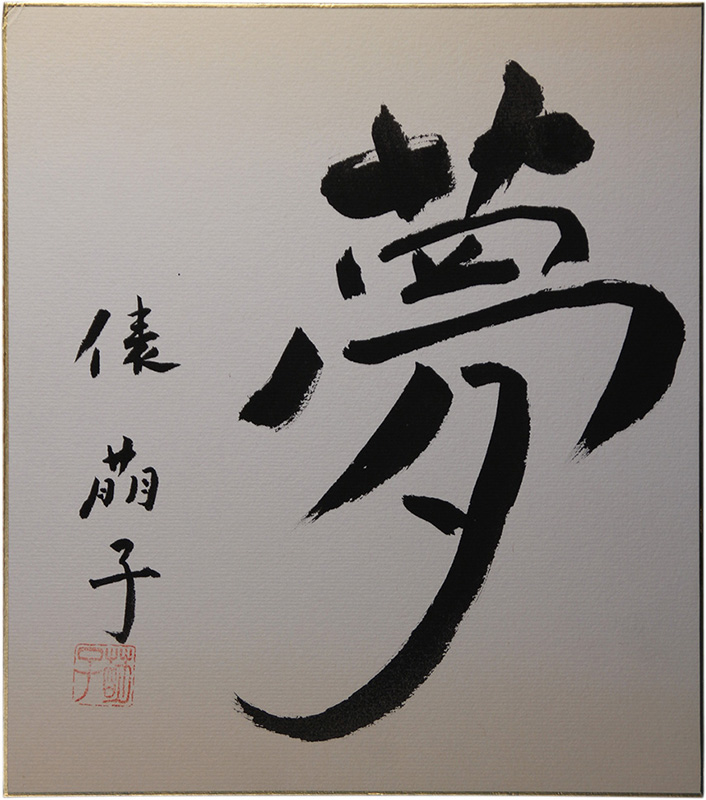 夢
俵萠子
萠子